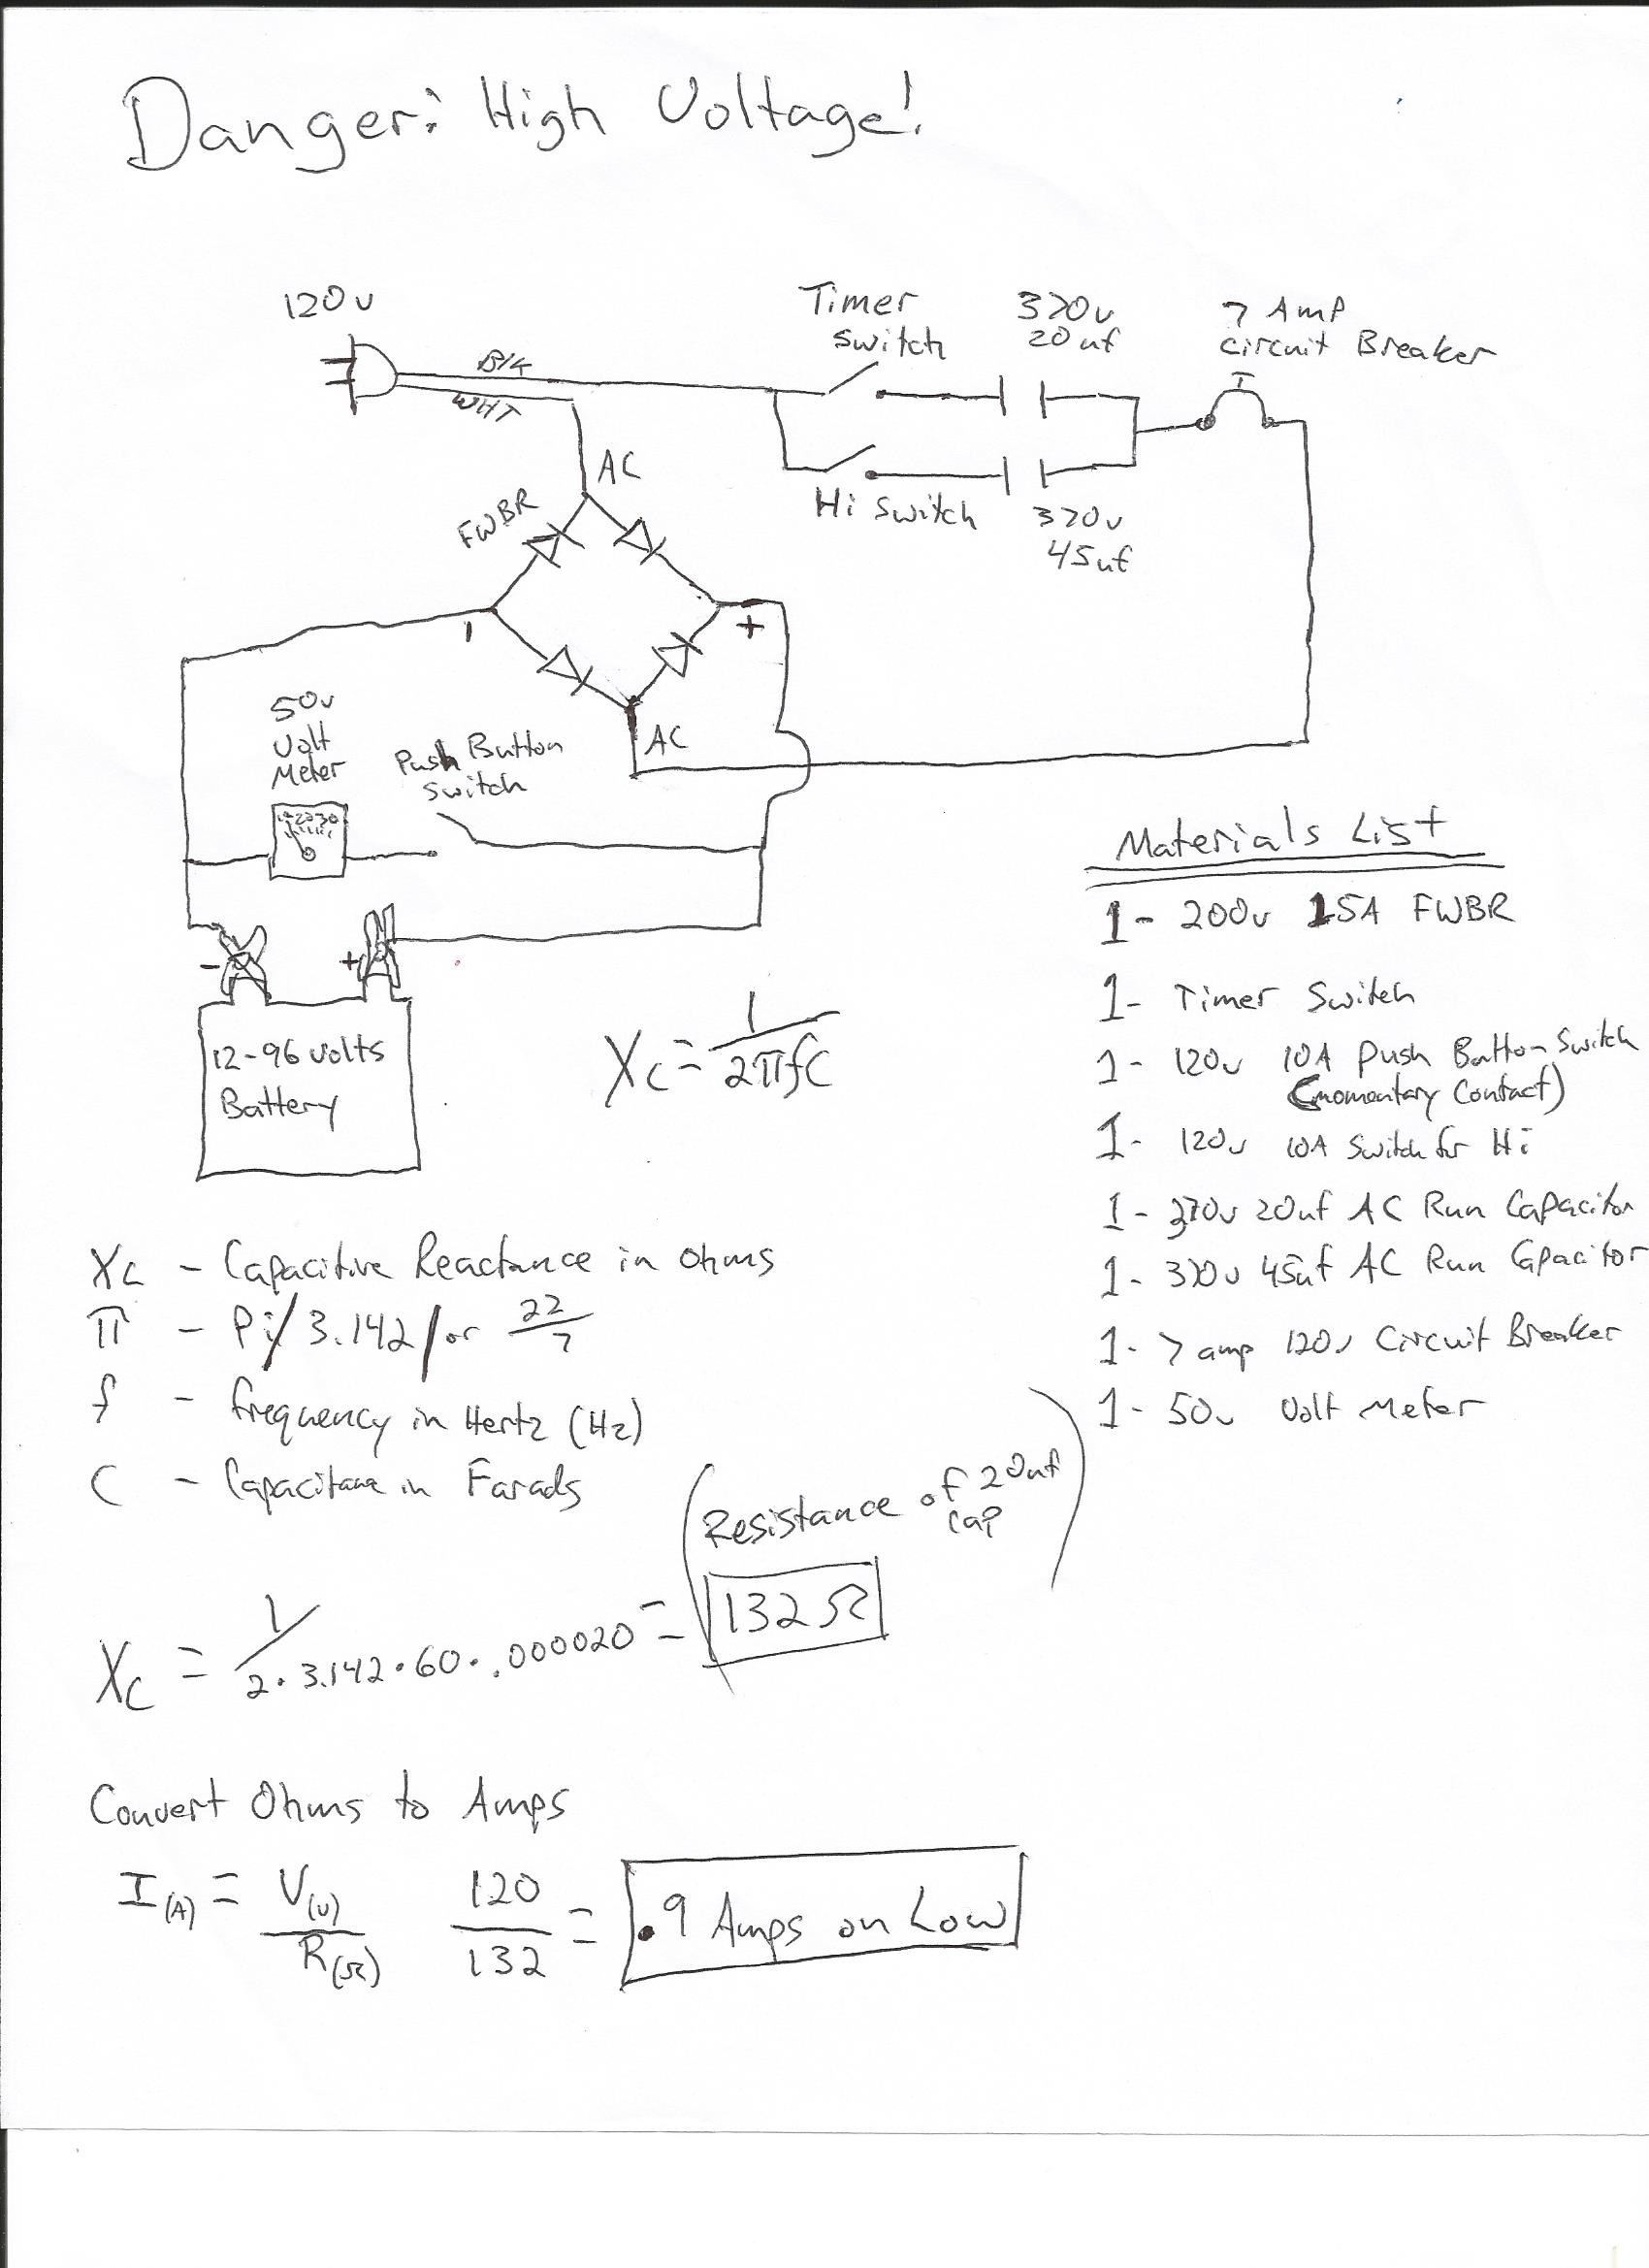 Danger: High Voltage!
120v
Timer
Switch
370v
20uf
7 Amp
Circuit Breaker
Blk
WHT
AC
FWBR
Hi Switch
370v
45uf
-
+
50v
Volt
Meter
Push Button
Switch
AC
10 20 30
-
+
12-96 volts
Battery
Xc = 1/2πfC
Materials List
1- 200v 15A FWBR
1- Timer Switch
1- 120v 10A Push Button Switch
(momentary Contact)
1- 120v 10A Switch for Hi
1- 370v 20uf AC Run Capacitor
1- 370v 45uf AC Run Capacitor
1- 7 amp 120v Circuit Breaker
1- 50v Volt Meter
Xc - Capacitive Reactance in Ohms
π - Pi/3.142/or 22/7
f - frequency in Hertz (Hz)
C - Capacitance in Farads
(Resistance of 20uf
cap)
Xc = 1/2·3.142·60·.000020 = 132Ω
Convert Ohms to Amps
I(A) = V(v)/R(Ω) 120/132 = .9 Amps on Low